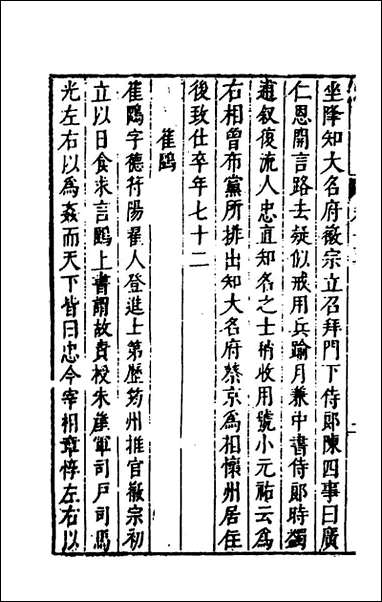 坐降知大名府徽宗立召拜門下侍郎陳四事曰廣
仁恩開言路去疑似戒用兵踰月兼中書侍郎時獨
適叙復流人忠直知名之士稍收用號小元祐云為
右相曾布黨所排出知大名府蔡京為相懷州居住
後致仕卒年七十二
崔鶠
崔鶠字德符陽翟人登進士第歷筠州推官徽宗初
立以日食求言鶠上書謂故貴授朱崖軍司戶司馬
光左右以為姦而天下皆曰忠今宰相章惇左右以